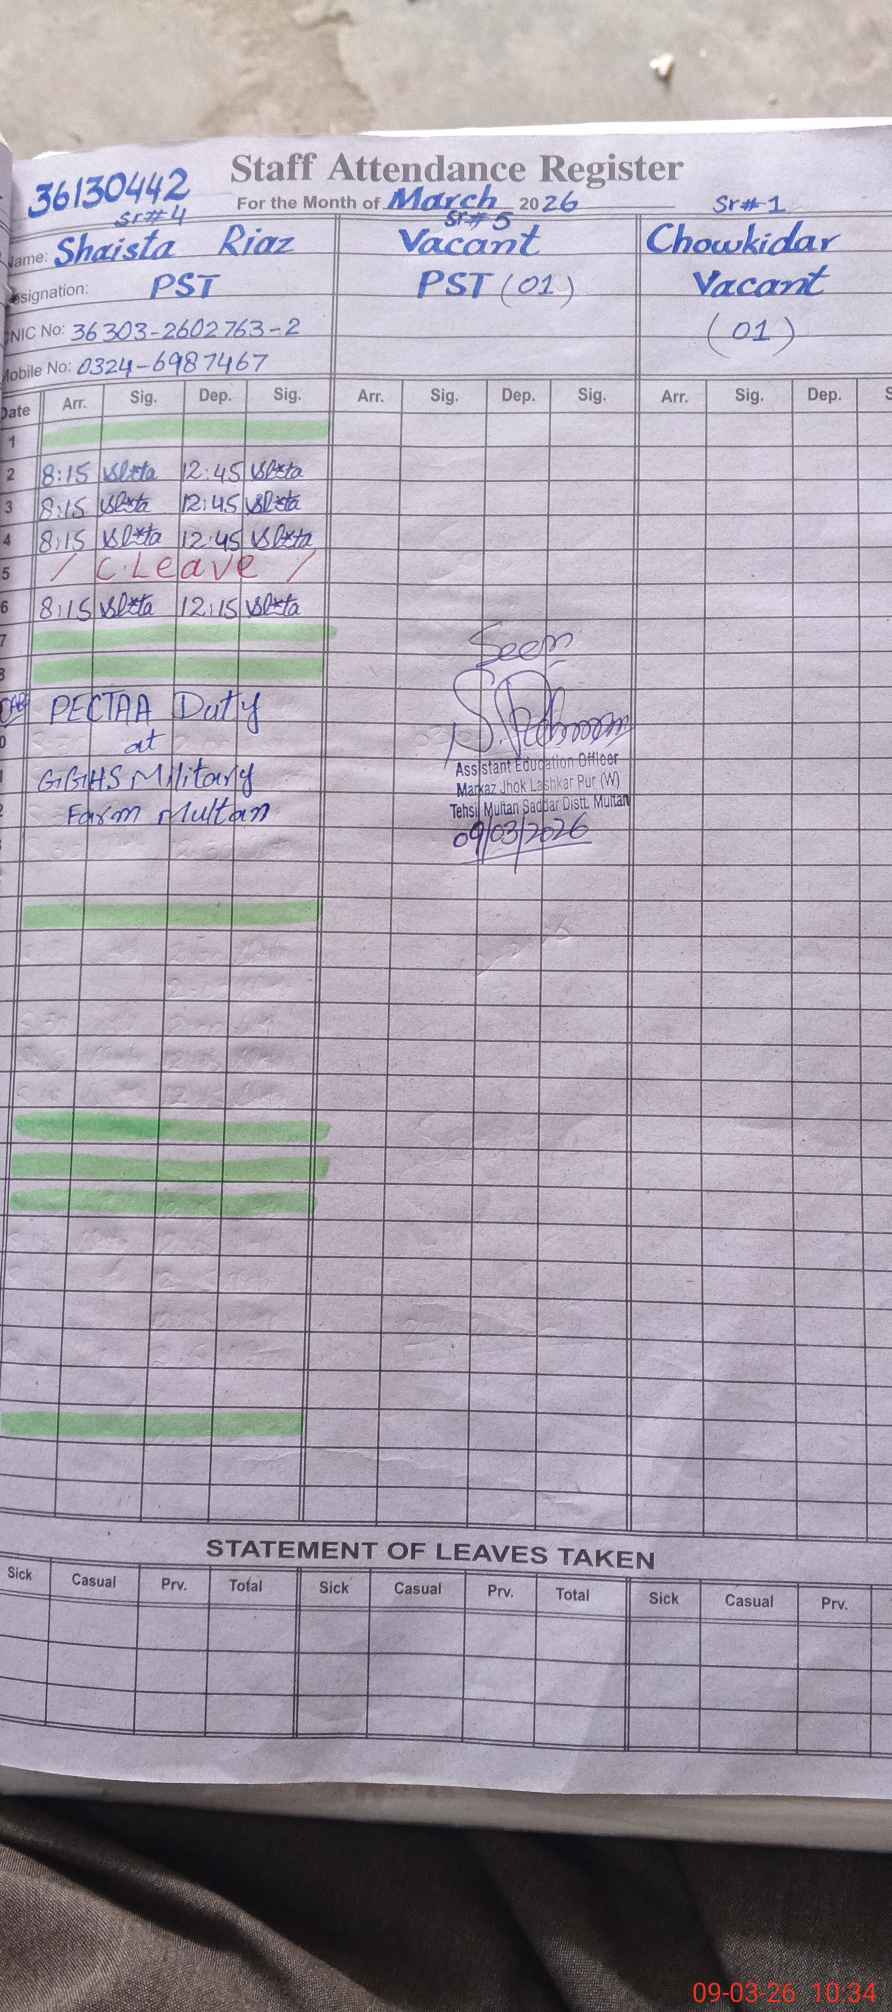 Staff Attendance Register
36130442
For the Month of March 2026
Sr# 4
Sr# 5
Sr# 1
Name: Shaista Riaz
Vacant
Chowkidar
signation: PST
PST (01)
Vacant
NIC No: 36303-2602763-2
(01)
Mobile No: 0324-6987467
Date Arr. Sig. Dep. Sig. Arr. Sig. Dep. Sig. Arr. Sig. Dep. S
1
2 8:15 12:45
3 8:15 12:45
4 8:15 12:45
5 / C.Leave /
6 8:15 12:15
7
Seen
PECTAA Duty
at
GGHS Military
Farm Multan
Assistant Education Officer
Markaz Jhok Lashkar Pur (W)
Tehsil Multan Saddar Distt. Multan
09/03/2026
STATEMENT OF LEAVES TAKEN
Sick Casual Prv. Total Sick Casual Prv. Total Sick Casual Prv.
09-03-26 10:34